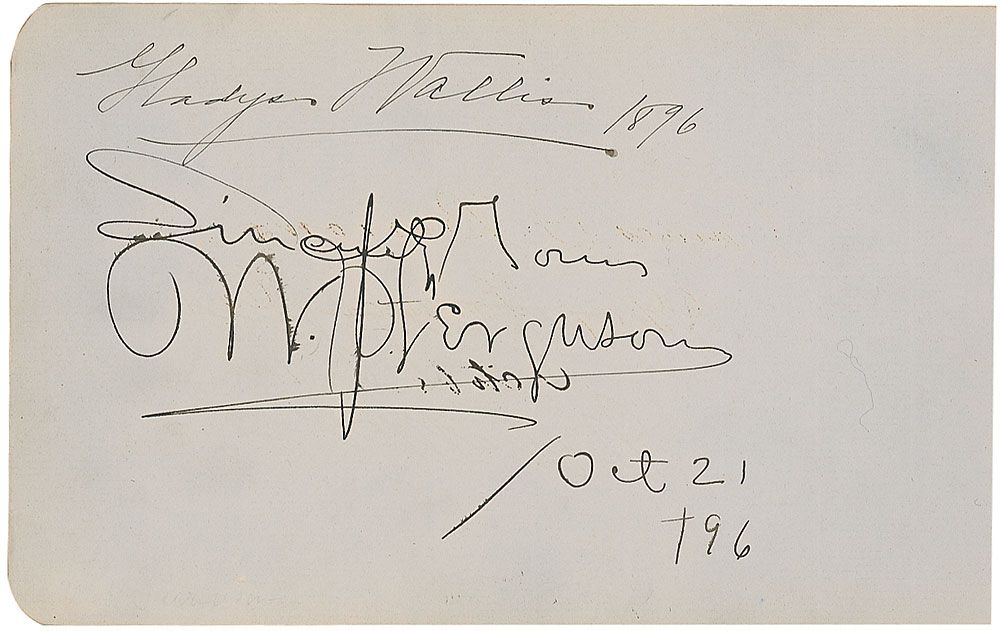 Gladys Wallis 1896
Sincerely Yours
W. J. Ferguson
Oct 21
'96